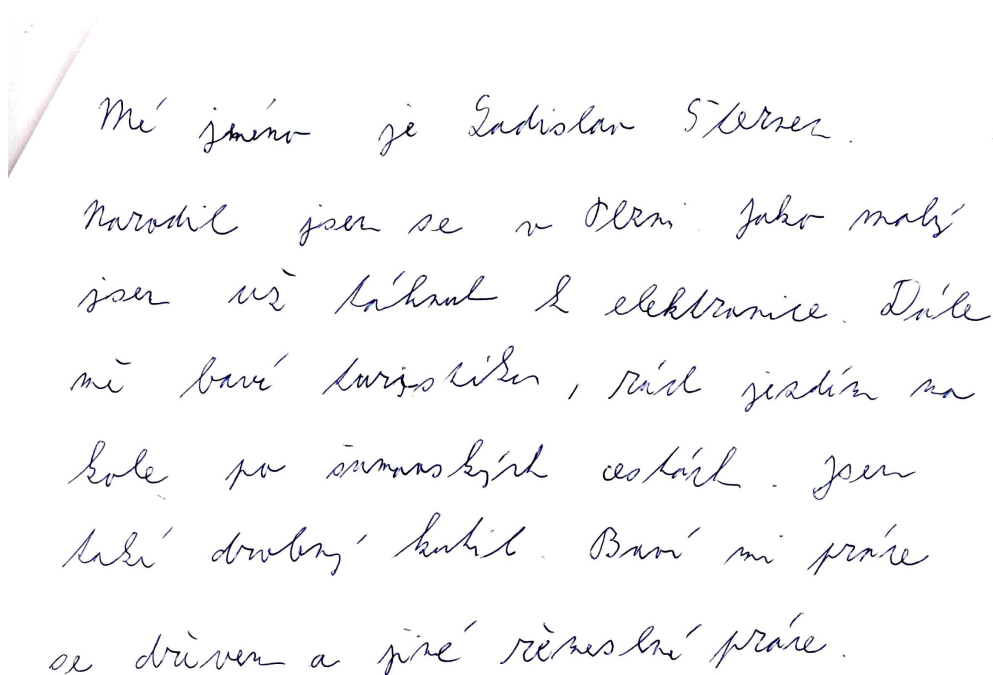 Mé jméno je Ladislav
Narodil jsem se v Plzni. Jako malý
jsem už táhnul k elektronice. Dále
mě baví turistika, rád jezdím na
kole po šumavských cestách. Jsem
také drobný kutil. Baví mi práce
se dřevem a jiné řemeslné práce.